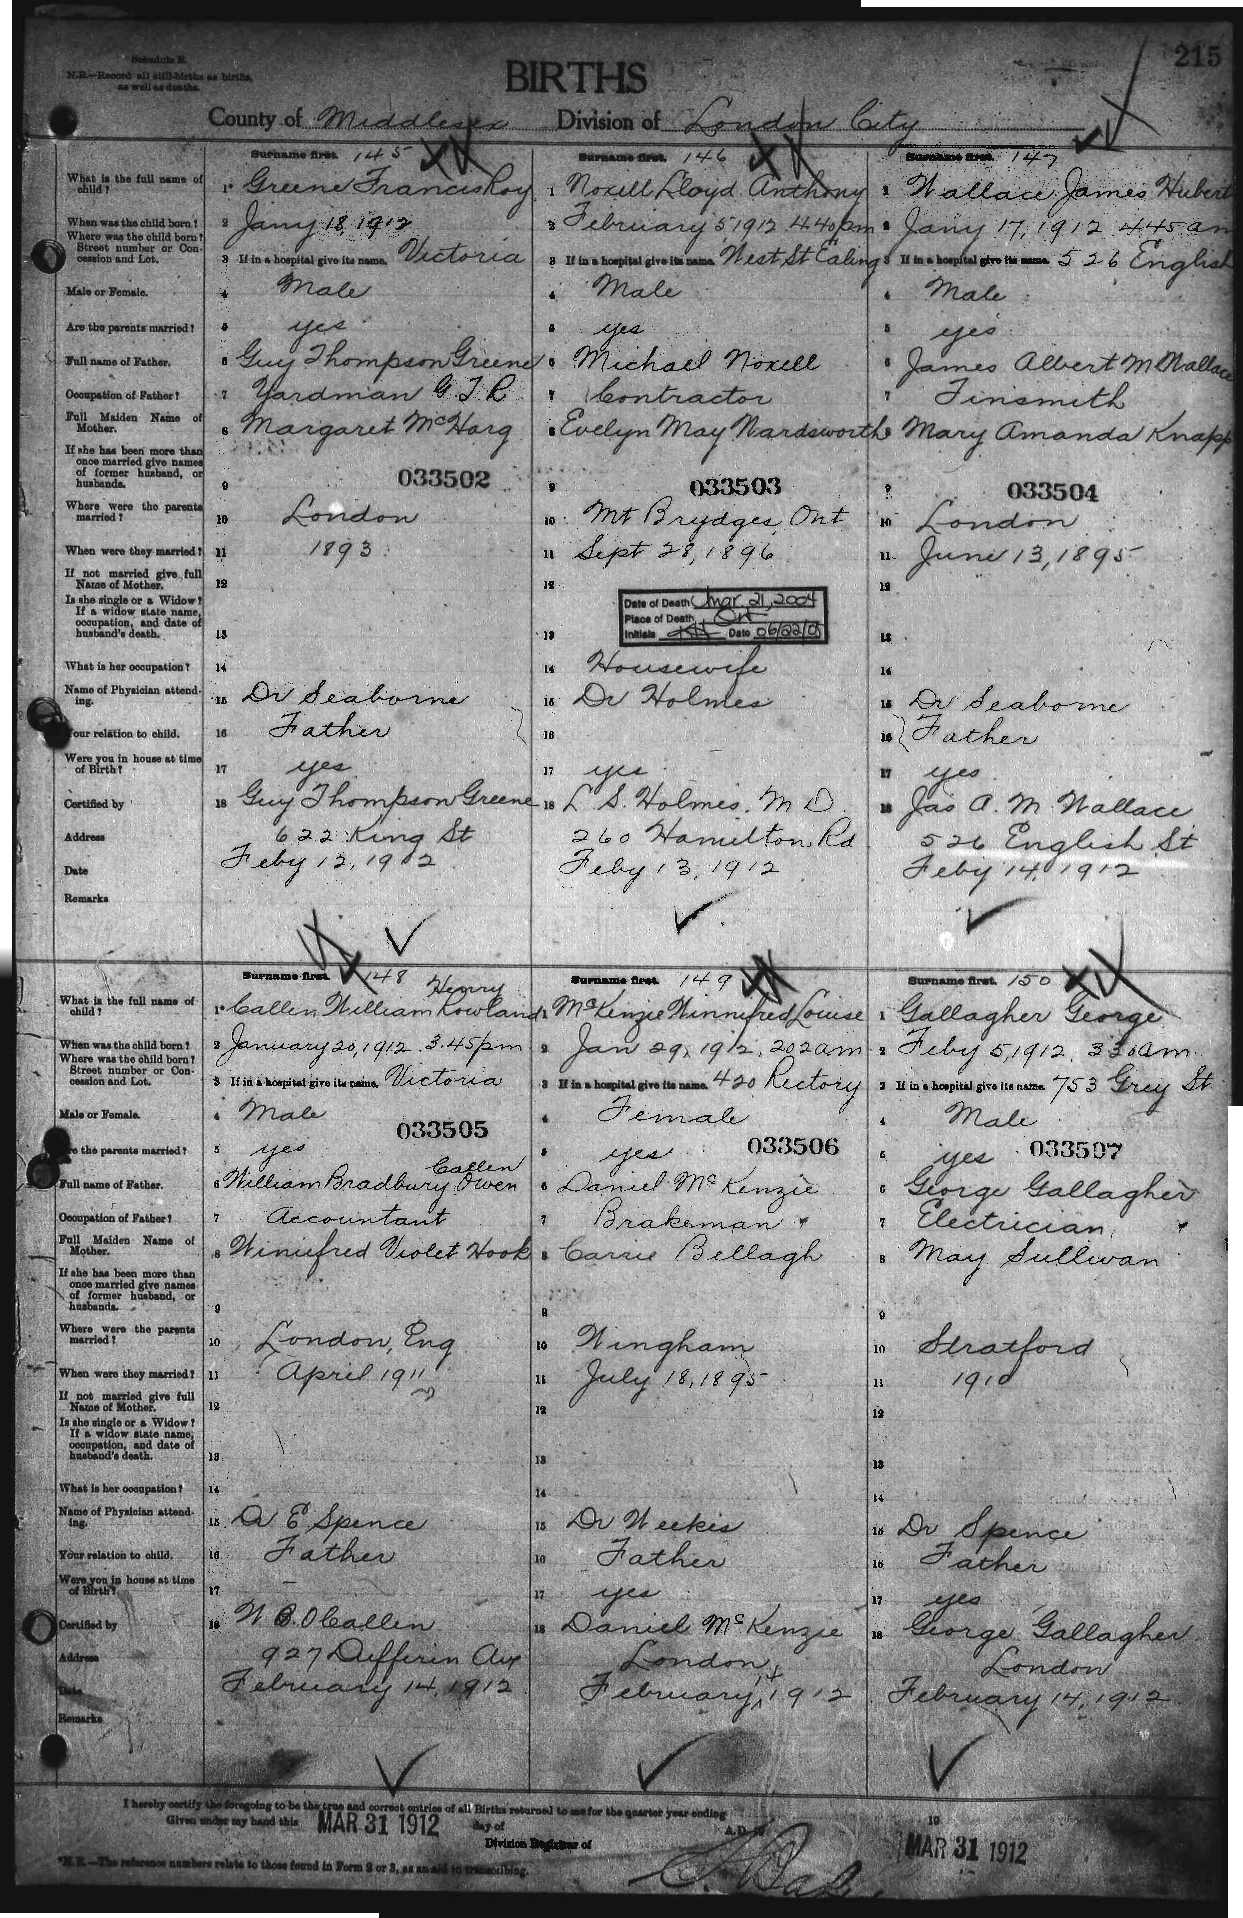 215
Schedule B.
N.B.—Record all still-births as births, as well as deaths.
BIRTHS
County of Middlesex Division of London City
Surname first. 145
Surname first. 146
Surname first. 147
What is the full name of child?
1 Greene Francis Roy
1 Noxell Lloyd Anthony
1 Wallace James Hubert
When was the child born?
2 Jany 18, 1912
2 February 5 1912 4 40 pm
2 Jany 17, 1912 4 45 am
Where was the child born? Street number or Concession and Lot.
3 If in a hospital give its name. Victoria
3 If in a hospital give its name. West St Ealing
3 If in a hospital give its name. 526 English
Male or Female.
4 Male
4 Male
4 Male
Are the parents married?
5 yes
5 yes
5 yes
Full name of Father.
6 Guy Thompson Greene
6 Michael Noxell
6 James Albert M Wallace
Occupation of Father?
7 Yardman G T R
7 Contractor
7 Tinsmith
Full Maiden Name of Mother.
8 Margaret McHarg
8 Evelyn May Wardsworth
8 Mary Amanda Knapp
If she has been more than once married give names of former husband, or husbands.
033502
033503
033504
9
9
9
Where were the parents married?
10 London
10 Mt Brydges, Ont
10 London
When were they married?
11 1893
11 Sept 28, 1896
11 June 13, 1895
If not married give full Name of Mother.
12
12
12
Is she single or a Widow? If a widow state name, occupation, and date of husband's death.
Date of Death Mar 21, 2004
Place of Death Ont
Initials KH Date 06/22/05
13
13
13
What is her occupation?
14
14 Housewife
14
Name of Physician attending.
15 Dr Seaborne
15 Dr Holmes
15 Dr Seaborne
Your relation to child.
16 Father
16
16 Father
Were you in house at time of Birth?
17 yes
17 yes
17 yes
Certified by
18 Guy Thompson Greene
18 L S. Holmes. M D
18 Jas A. M Wallace
Address
622 King St
260 Hamilton Rd
526 English St
Date
Feby 12, 1912
Feby 13, 1912
Feby 14, 1912
Remarks
Surname first. 148
Surname first. 149
Surname first. 150
What is the full name of child?
Henry
1 Callen William Rowland
1 McKenzie Winnifred Louise
1 Gallagher George
When was the child born?
2 January 20, 1912 3.45 pm
2 Jan 29, 1912, 202 am
2 Feby 5, 1912, 330 am
Where was the child born? Street number or Concession and Lot.
3 If in a hospital give its name. Victoria
3 If in a hospital give its name. 420 Rectory
3 If in a hospital give its name. 753 Grey St
Male or Female.
4 Male
4 Female
4 Male
033505
033506
033507
Are the parents married?
5 yes
5 yes
5 yes
Full name of Father.
Callen
6 William Bradbury Owen
6 Daniel McKenzie
6 George Gallagher
Occupation of Father?
7 Accountant
7 Brakeman
7 Electrician
Full Maiden Name of Mother.
8 Winifred Violet Hook
8 Carrie Bellagh
8 May Sullivan
If she has been more than once married give names of former husband, or husbands.
9
9
9
Where were the parents married?
10 London, Eng
10 Wingham
10 Stratford
When were they married?
11 April 1911
11 July 18, 1895
11 1910
If not married give full Name of Mother.
12
12
12
Is she single or a Widow? If a widow state name, occupation, and date of husband's death.
13
13
13
What is her occupation?
14
14
14
Name of Physician attending.
15 Dr E Spence
15 Dr Weekes
15 Dr Spence
Your relation to child.
16 Father
16 Father
16 Father
Were you in house at time of Birth?
17 –
17 yes
17 yes
Certified by
18 W B O Callen
18 Daniel McKenzie
18 George Gallagher
Address
927 Dufferin Ave
London
London
Date
February 14, 1912
February 14, 1912
February 14, 1912
Remarks
I hereby certify the foregoing to be the true and correct entries of all Births returned to me for the quarter year ending 19
Given under my hand this MAR 31 1912 day of A.D. 19 MAR 31 1912
Division Registrar of
*N.B.—The reference numbers relate to those found in Form 2 or 3, as an aid in transcribing.